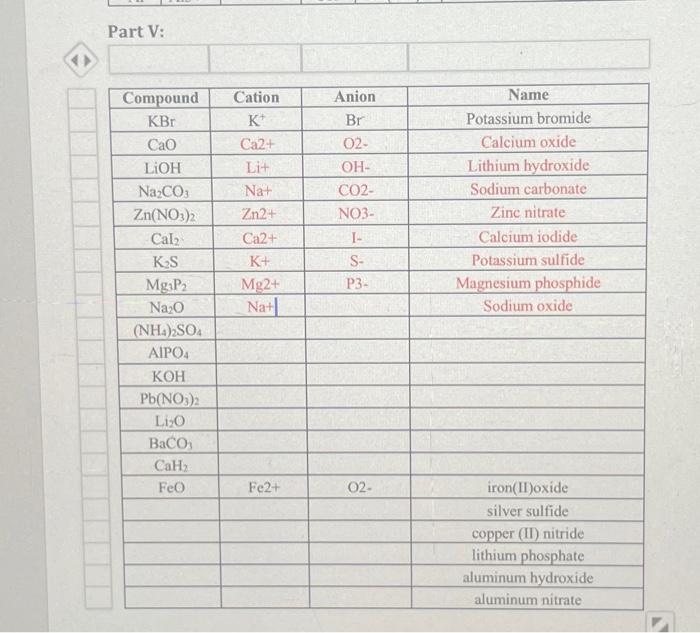 Part V:
Compound Cation Anion Name
KBr K⁺ Br⁻ Potassium bromide
CaO Ca2+ O2- Calcium oxide
LiOH Li+ OH- Lithium hydroxide
Na₂CO₃ Na+ CO2- Sodium carbonate
Zn(NO₃)₂ Zn2+ NO3- Zinc nitrate
CaI₂ Ca2+ I- Calcium iodide
K₂S K+ S- Potassium sulfide
Mg₃P₂ Mg2+ P3- Magnesium phosphide
Na₂O Na+ Sodium oxide
(NH₄)₂SO₄
AlPO₄
KOH
Pb(NO₃)₂
Li₂O
BaCO₃
CaH₂
FeO Fe2+ O2- iron(II)oxide
silver sulfide
copper (II) nitride
lithium phosphate
aluminum hydroxide
aluminum nitrate